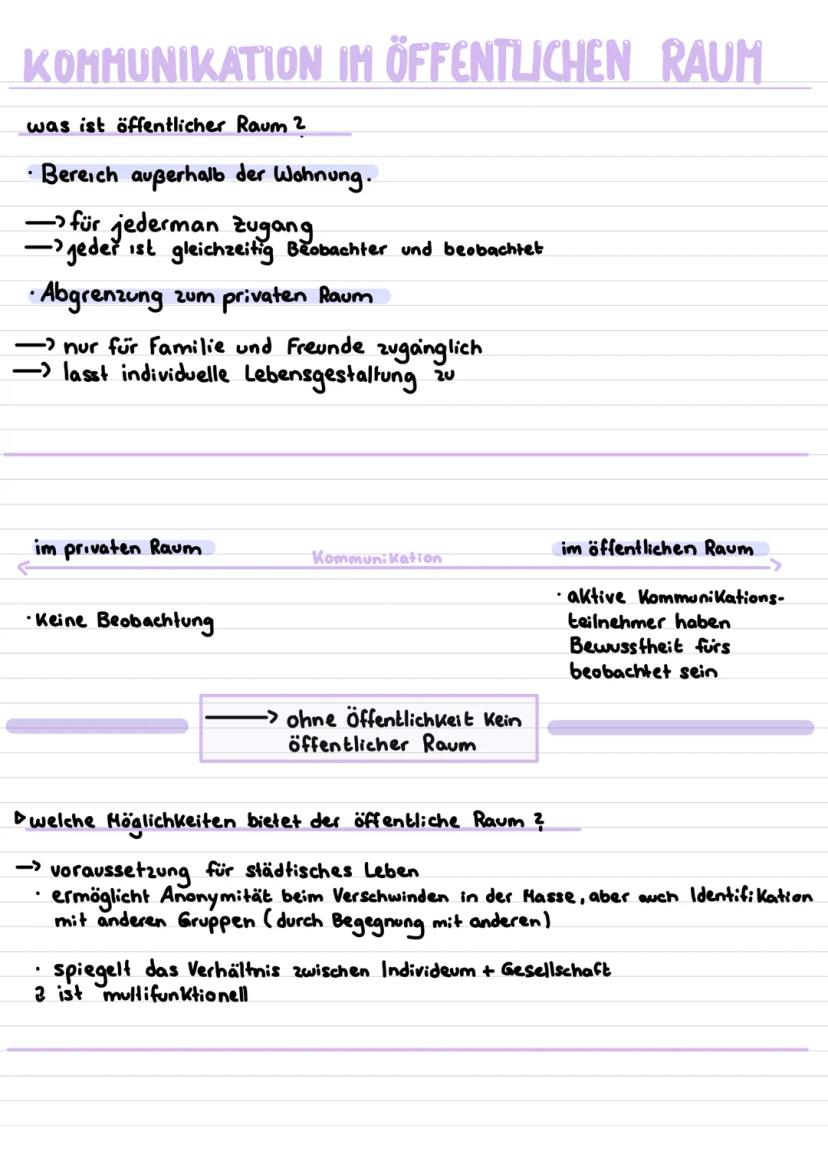 KOMMUNIKATION IM ÖFFENTLICHEN RAUM
was ist öffentlicher Raum?
· Bereich außerhalb der Wohnung.
—> für jederman Zugang
—> jeder ist gleichzeitig Beobachter und beobachtet
· Abgrenzung zum privaten Raum
—> nur für Familie und Freunde zugänglich
—> lasst individuelle Lebensgestaltung zu
im privaten Raum
Kommunikation
im öffentlichen Raum
· Keine Beobachtung
· aktive Kommunikations-
teilnehmer haben
Bewusstheit fürs
beobachtet sein
—> ohne Öffentlichkeit kein
öffentlicher Raum
▷ welche Möglichkeiten bietet der öffentliche Raum?
—> voraussetzung für städtisches Leben
· ermöglicht Anonymität beim Verschwinden in der Masse, aber auch Identifikation
mit anderen Gruppen (durch Begegnung mit anderen)
· spiegelt das Verhältnis zwischen Individeum + Gesellschaft
ist multifunktionell